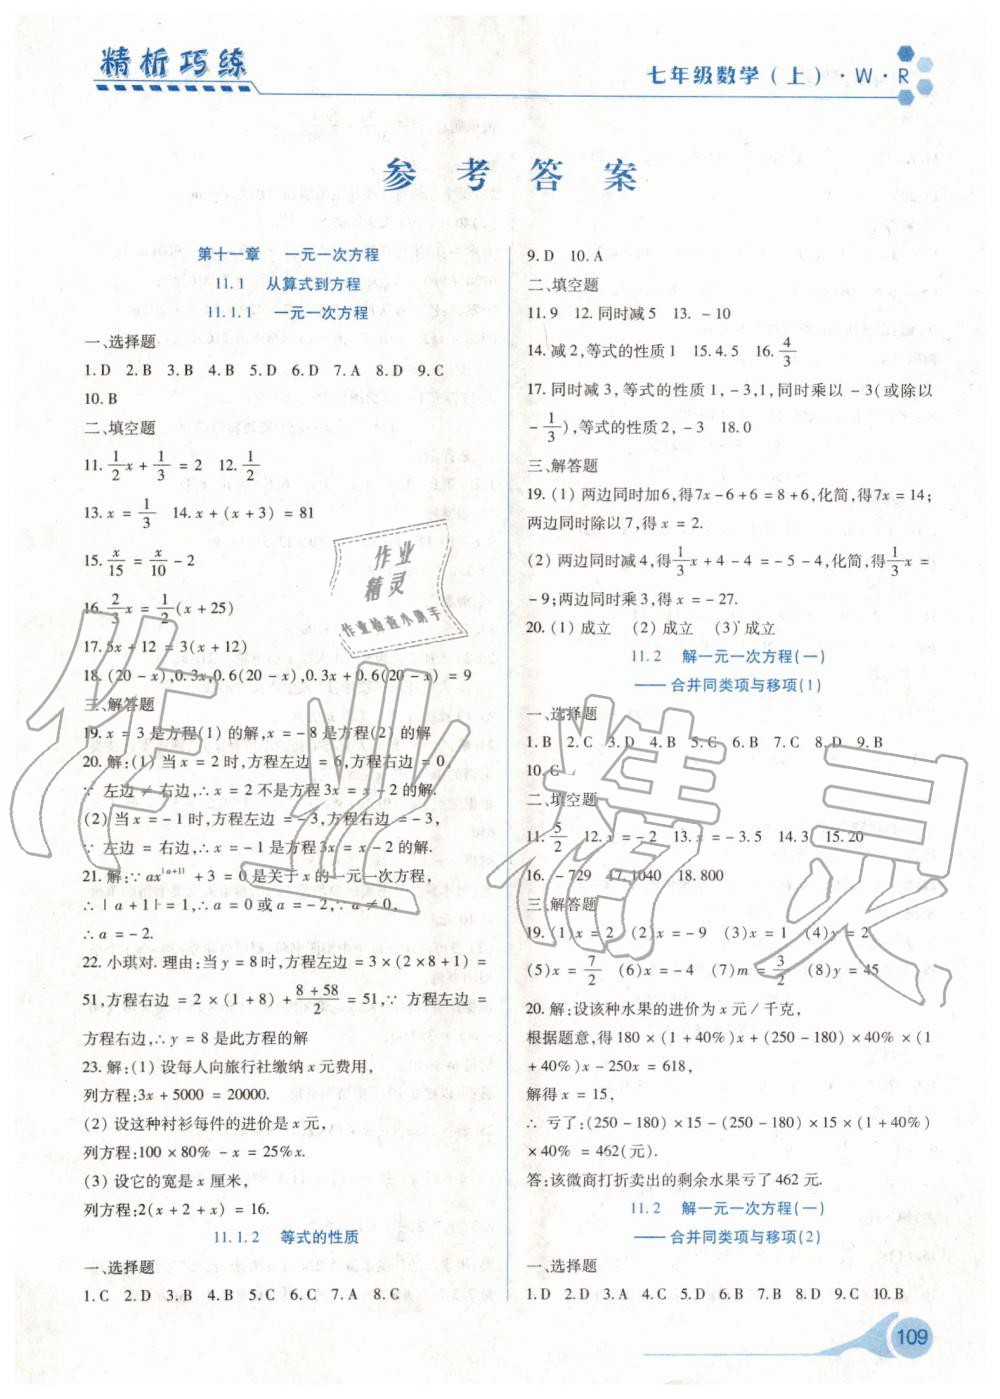 精析巧练
七年级数学(上)·W·R
参考答案
第十一章 一元一次方程
11.1 从算式到方程
11.1.1 一元一次方程
一、选择题
1.D 2.B 3.B 4.B 5.D 6.D 7.A 8.D 9.C
10.B
二、填空题
11.1/2x+1/3=2 12.1/2
13.x=1/3 14.x+(x+3)=81
15.x/15=x/10-2
16.2/3x=1/2(x+25)
17.5x+12=3(x+12)
18.(20-x),0.3x,0.6(20-x),0.3x+0.6(20-x)=9
三、解答题
19.x=3是方程(1)的解,x=-8是方程(2)的解
20.解:(1)当x=2时,方程左边=6,方程右边=0,
∵左边≠右边,∴x=2不是方程3x=x-2的解.
(2)当x=-1时,方程左边=-3,方程右边=-3,
∵左边=右边,∴x=-1是方程3x=x-2的解.
21.解:∵ax^|a+1|+3=0是关于x的一元一次方程,
∴|a+1|=1,∴a=0或a=-2,∵a≠0,
∴a=-2.
22.小琪对.理由:当y=8时,方程左边=3×(2×8+1)=
51,方程右边=2×(1+8)+(8+58)/2=51,∵方程左边=
方程右边,∴y=8是此方程的解
23.解:(1)设每人向旅行社缴纳x元费用,
列方程:3x+5000=20000.
(2)设这种衬衫每件的进价是x元,
列方程:100×80%-x=25%x.
(3)设它的宽是x厘米,
列方程:2(x+2+x)=16.
11.1.2 等式的性质
一、选择题
1.C 2.D 3.B 4.B 5.C 6.C 7.A 8.C
9.D 10.A
二、填空题
11.9 12.同时减5 13.-10
14.减2,等式的性质1 15.4.5 16.4/3
17.同时减3,等式的性质1,-3,1,同时乘以-3(或除以
-1/3),等式的性质2,-3 18.0
三、解答题
19.(1)两边同时加6,得7x-6+6=8+6,化简,得7x=14;
两边同时除以7,得x=2.
(2)两边同时减4,得1/3x+4-4=-5-4,化简,得1/3x=
-9;两边同时乘3,得x=-27.
20.(1)成立 (2)成立 (3)成立
11.2 解一元一次方程(一)
——合并同类项与移项(1)
一、选择题
1.B 2.C 3.D 4.B 5.C 6.B 7.C 8.D 9.B
10.C
二、填空题
11.5/2 12.x=-2 13.x=-3.5 14.3 15.20
16.-729 17.1040 18.800
三、解答题
19.(1)x=2 (2)x=-9 (3)x=1 (4)x=2
(5)x=7/2 (6)x=-4 (7)m=3/2 (8)y=45
20.解:设该种水果的进价为x元/千克,
根据题意,得180×(1+40%)x+(250-180)×40%×(1
+40%)x-250x=618,
解得x=15,
∴亏了:(250-180)×15-(250-180)×15×(1+40%)
×40%=462(元).
答:该微商打折卖出的剩余水果亏了462元.
11.2 解一元一次方程(一)
——合并同类项与移项(2)
一、选择题
1.D 2.D 3.A 4.C 5.B 6.D 7.B 8.D 9.C 10.B
109
作业
精灵
作业检查小助手
作业精灵